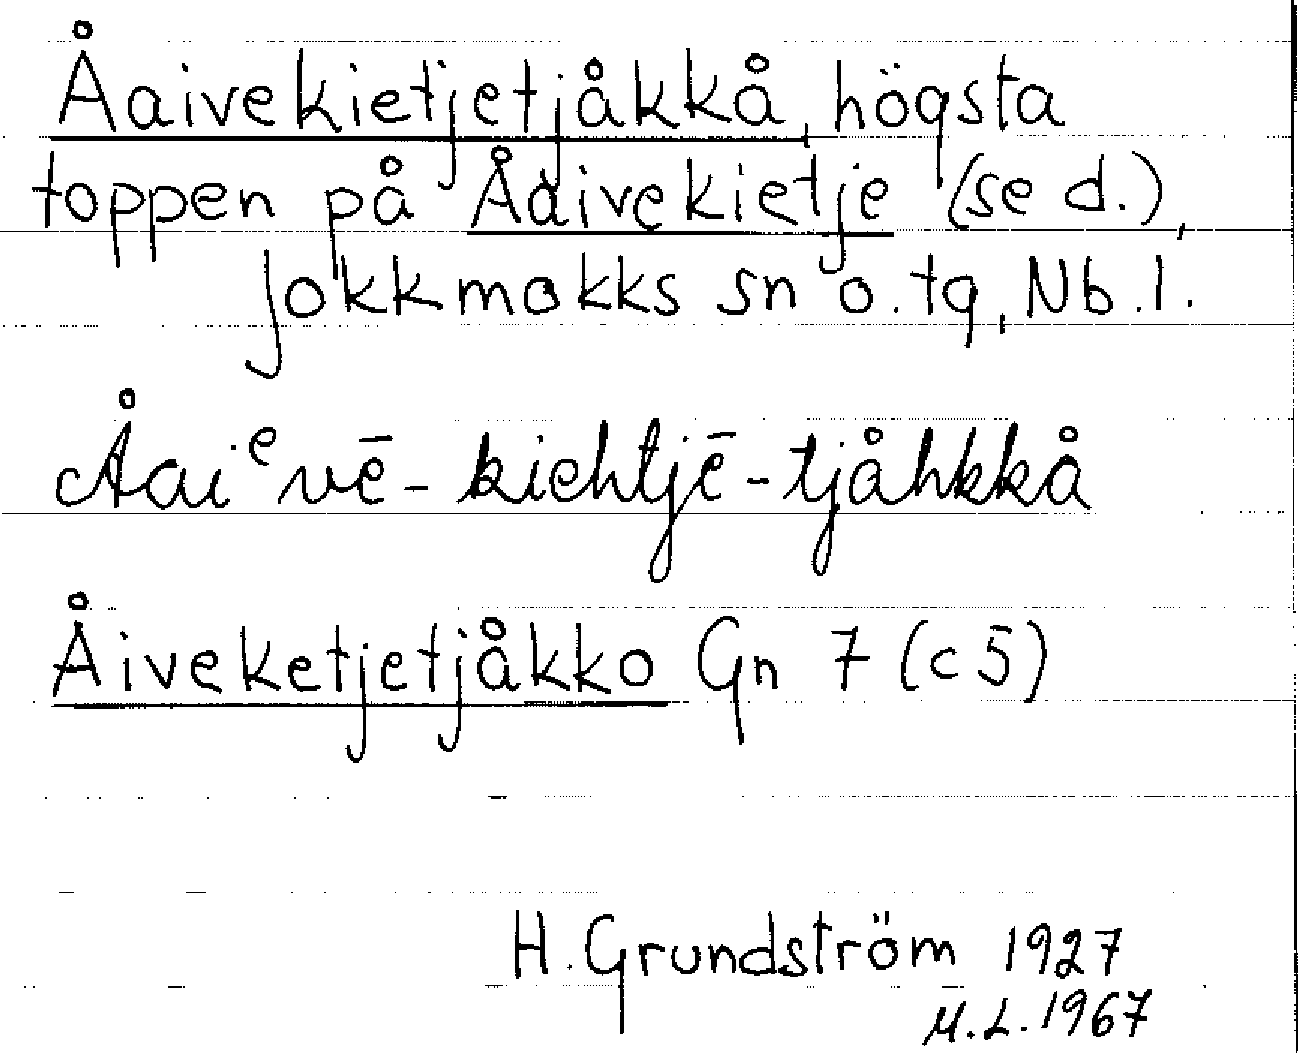 Åaivekietjetjåkkå, högsta
toppen på Åaivekietje (se d.),
Jokkmokks sn o. tg, Nb. l.
Åaiᵉvē-kiehtjē-tjåhkkå
Åiveketjetjåkko Gn 7 (c5)
H. Grundström 1927
M.L. 1967